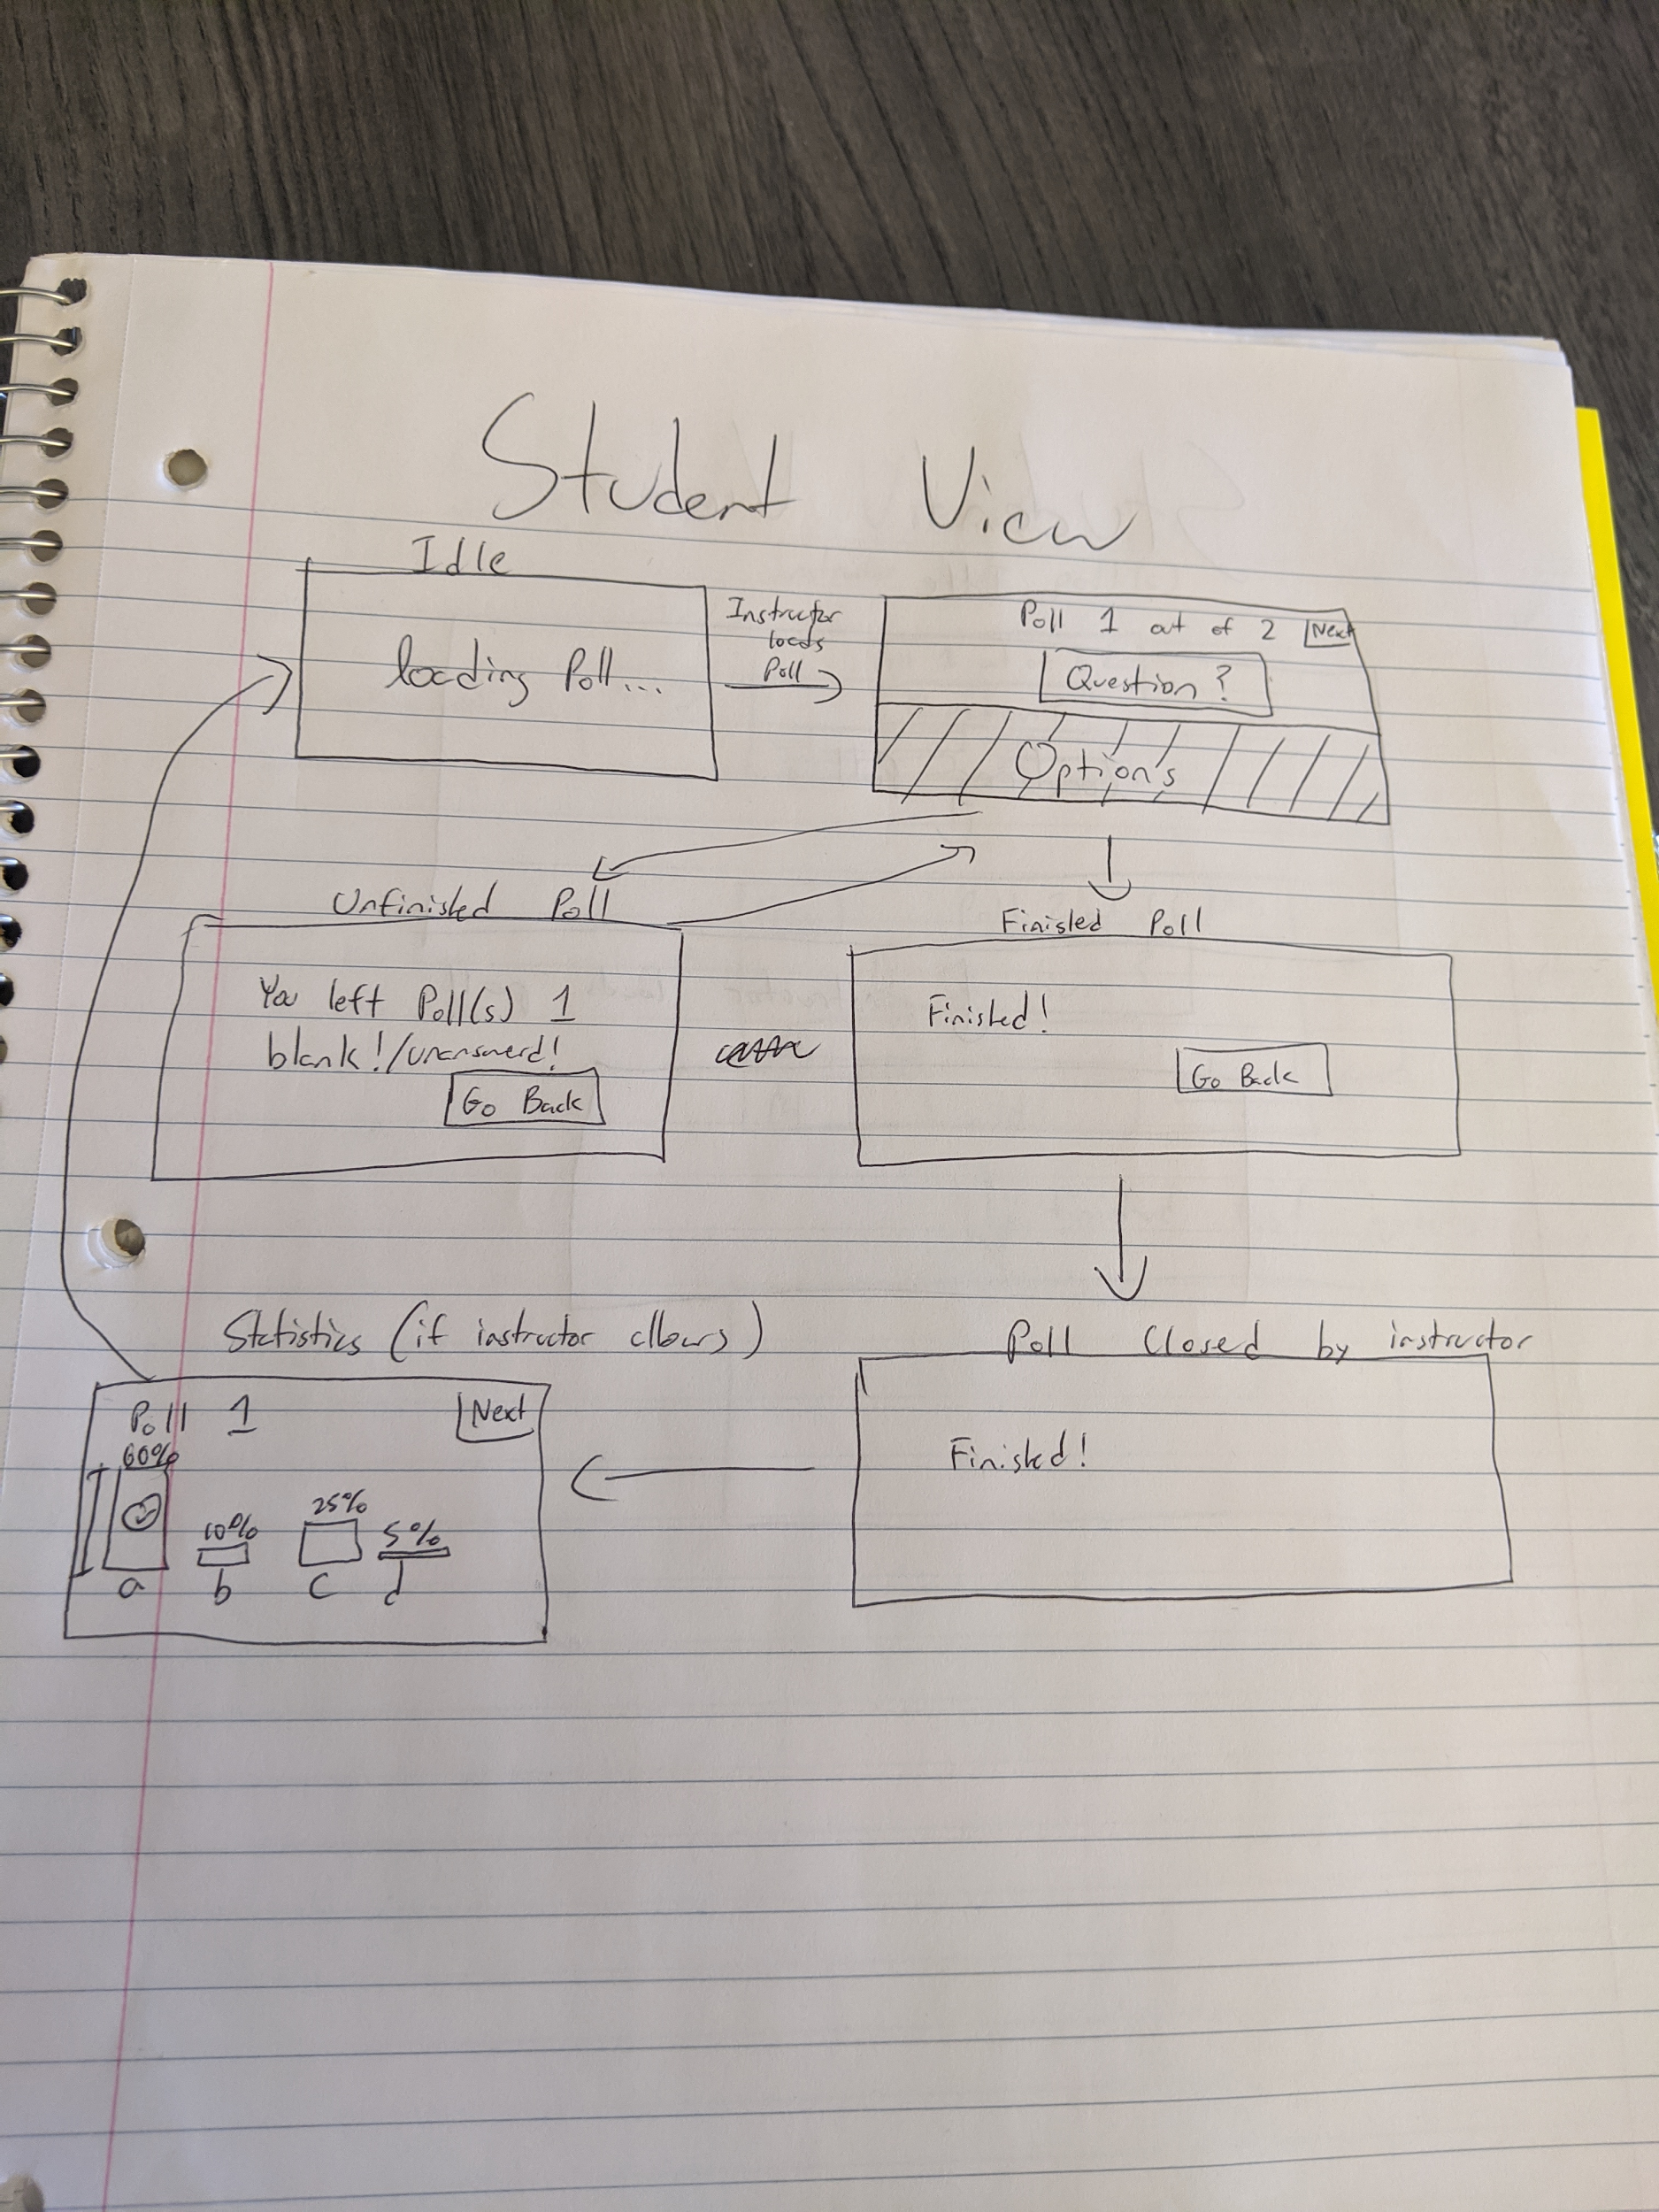 Student View
Idle
loading Poll...
Instructor
loads
Poll
Poll 1 out of 2 Next
Question?
Options
Unfinished Poll
You left Poll(s) 1
blank!/unanswerd!
Go Back
Finished Poll
Finished!
Go Back
Statistics (if instructor allows)
Poll 1 Next
60%
10%
25%
5%
a b c d
Poll Closed by instructor
Finished!